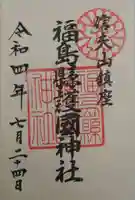 信夫山鎮座
福島縣護國神社
令和四年七月二十四日